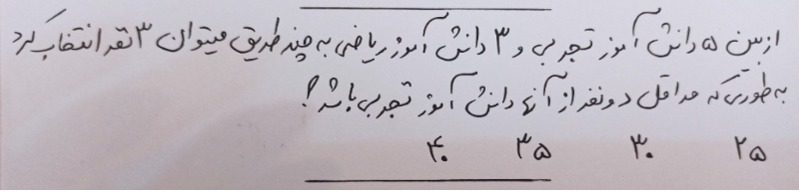 از بین ۵ دانش آموز تجربی و ۳ دانش آموز ریاضی به چند طریق میتوان ۳ نفر انتخاب کرد
به طوری که حداقل دو نفر از آنها دانش آموز تجربی باشد؟
۲۵ ۳۰ ۳۵ ۴۰